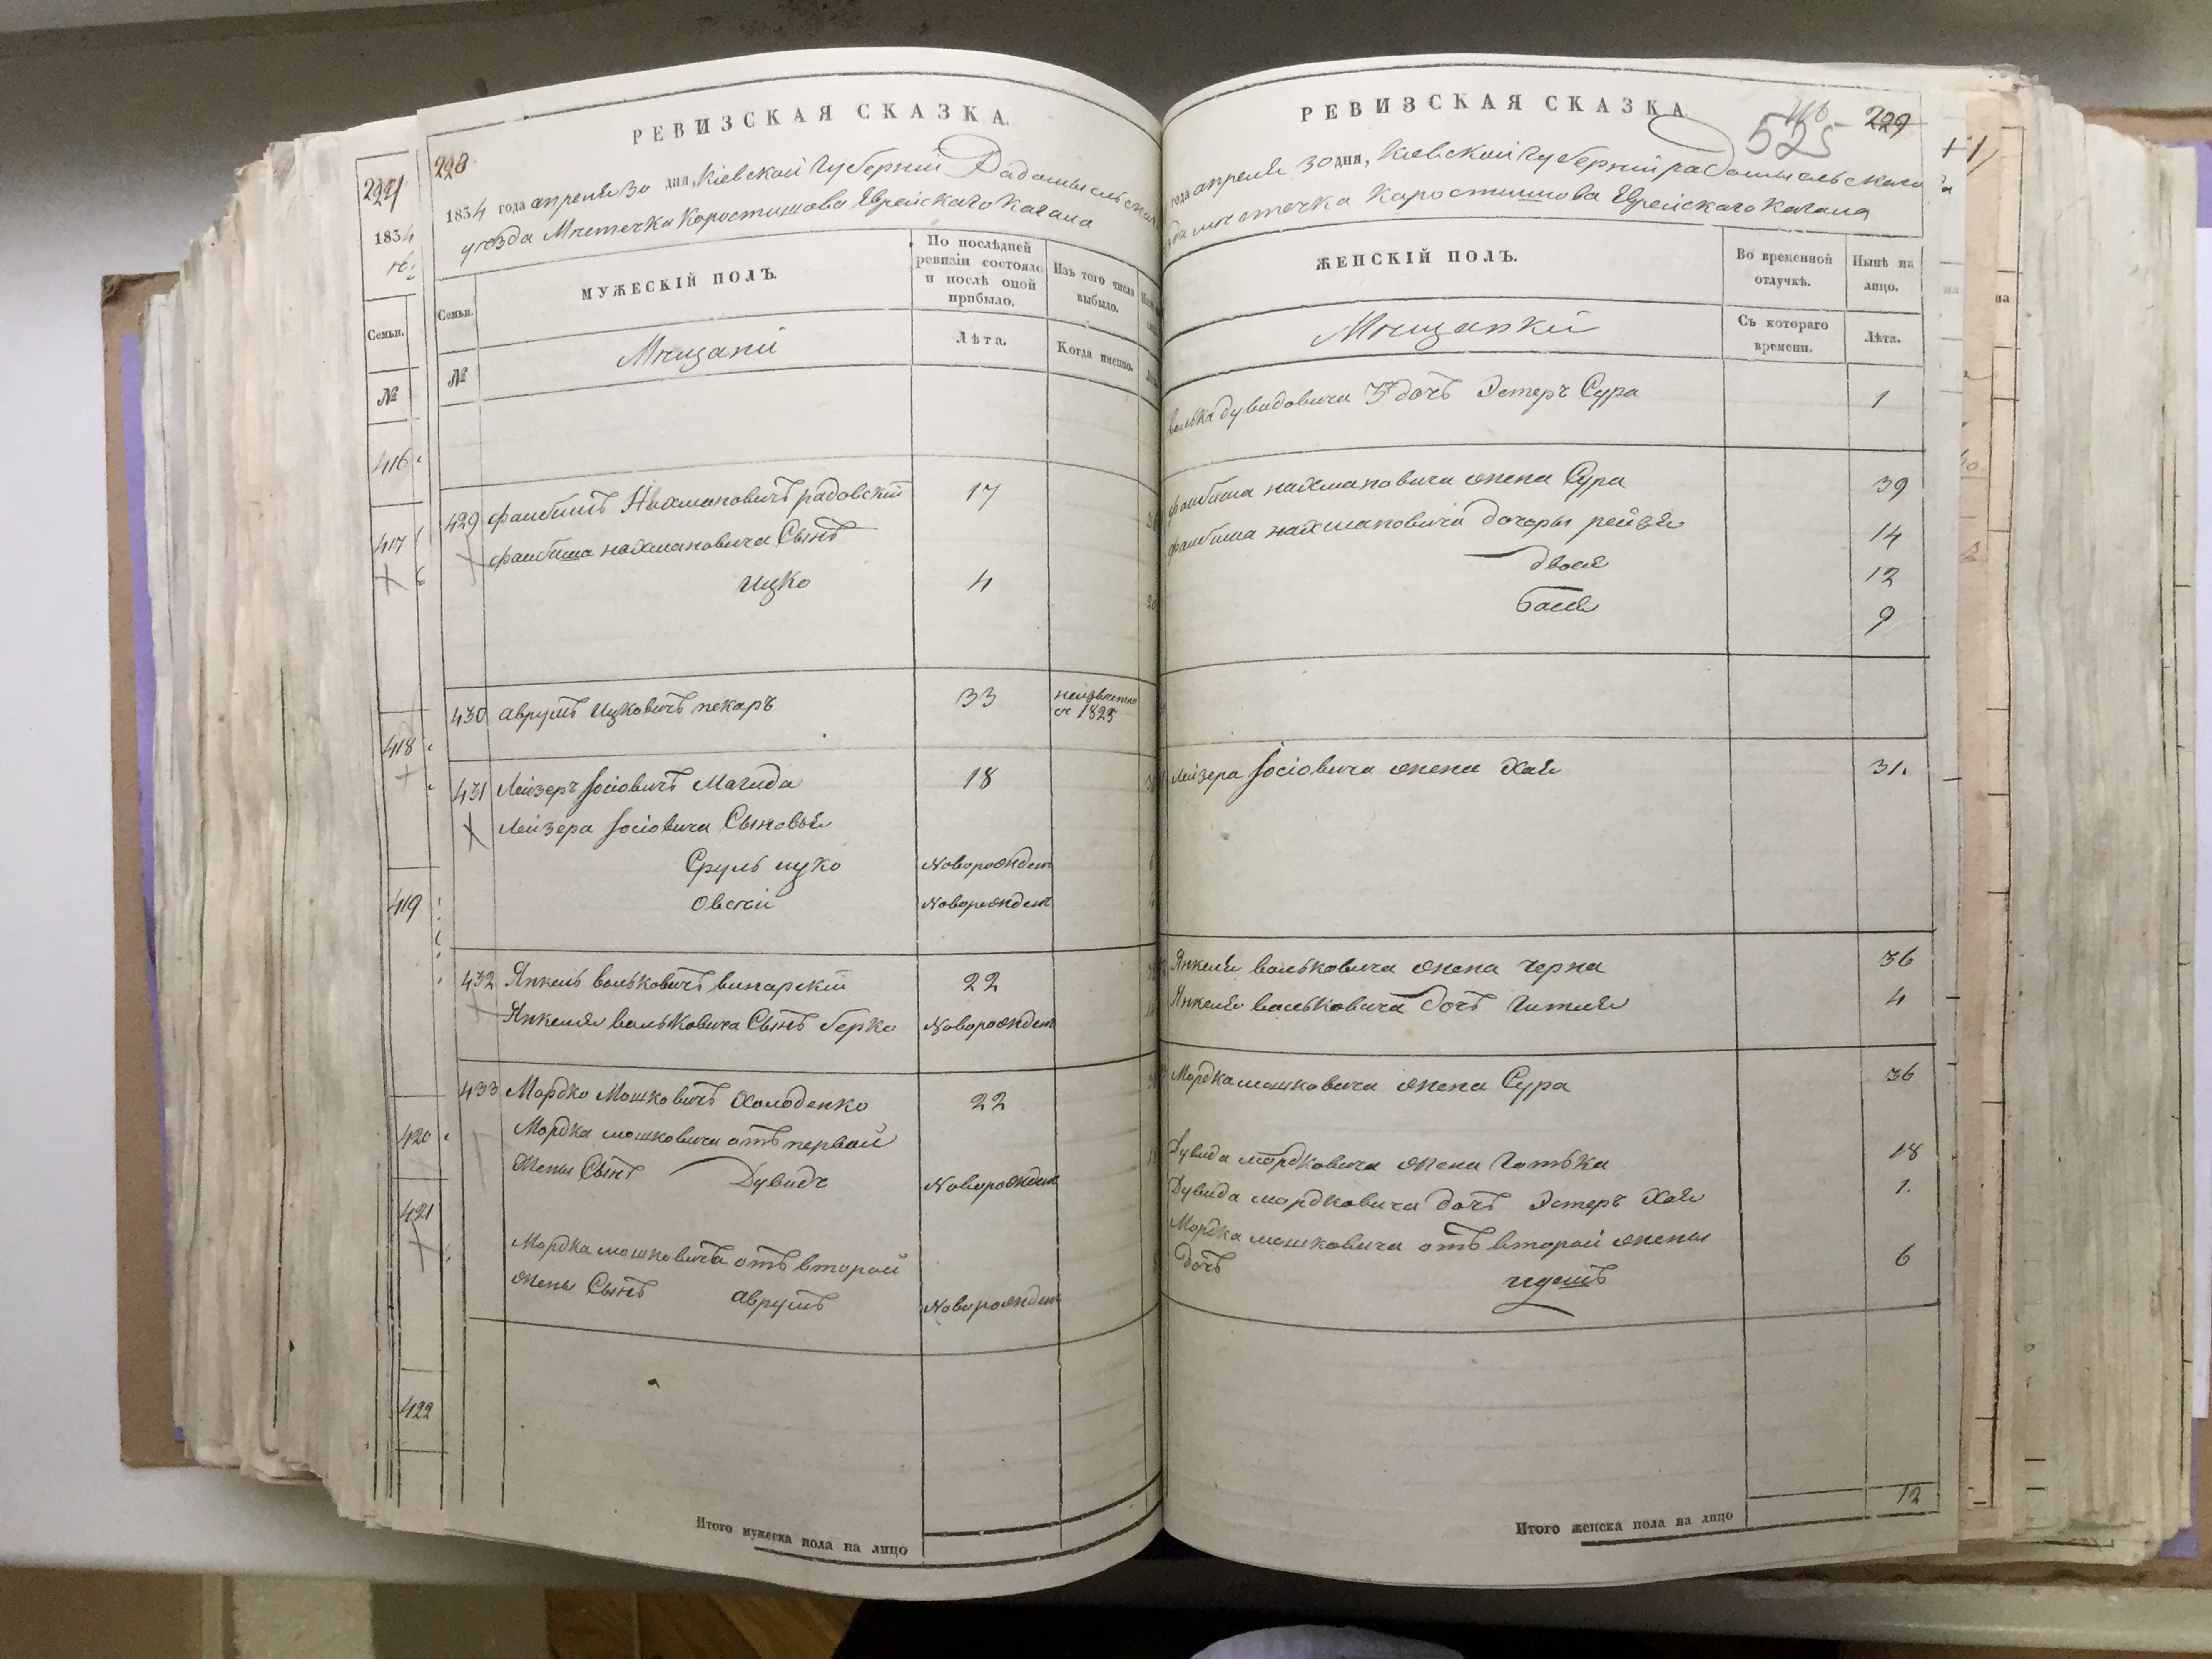 228
РЕВИЗСКАЯ СКАЗКА
1834 года апреля 30 дня, Кіевской Губерніи Радомысльскаго
уезда Местечка Коростишова Еврейскаго Кагала
Семьи.
МУЖЕСКІЙ ПОЛЪ.
По послѣдней ревизіи состояло и послѣ оной прибыло.
Изъ того числа выбыло.
№
Мѣщани
Лѣта.
Когда именно.
429 фаибишъ Нахмановичъ радовскій 17
фаибиша нахмановича Сынъ
ицко 4
430 аврумъ ицковичъ пекаръ 33 неизвестно съ 1825
431 Лейзеръ Іосіовичъ Магида 18
Лейзера Іосіовича Сыновья
Сруль ицко Новорожден
Овсій Новорожден
432 Янкель вольковичъ винарскій 22
Янкеля вольковича Сынъ берко Новорожден
433 Мордко Мошковичъ Холоденко 22
Мордка мошковича отъ первой
жены Сынъ Дувидъ Новорожден
Мордка мошковича отъ второй
жены Сынъ аврумъ Новорожден
Итого мужеска пола на лицо
РЕВИЗСКАЯ СКАЗКА
525
229
года апреля 30 дня, Кіевской Губерніи радомысльскаго
местечка Коростишова Еврейскаго Кагала
ЖЕНСКІЙ ПОЛЪ.
Во временной отлучкѣ.
Нынѣ на лицо.
Мѣщанки
Съ котораго времени.
Лѣта.
волька дувидовича 3я дочь Эстеръ Сура 1
фаибиша нахмановича жена Сура 39
фаибиша нахмановича дочеры рейзя 14
двося 12
бася 9
Лейзера Іосіовича жена Хая 31.
Янкеля вольковича жена черна 36
Янкеля вольковича дочь гитля 4
Мордка мошковича жена Сура 36
Дувида мордковича жена готька 18
Дувида мордковича дочь Эстеръ Хая 1.
Мордка мошковича отъ второй жены
дочь 6
12
Итого женска пола на лицо
1834
Семьи.
№
416
417
418
419
420
421
422